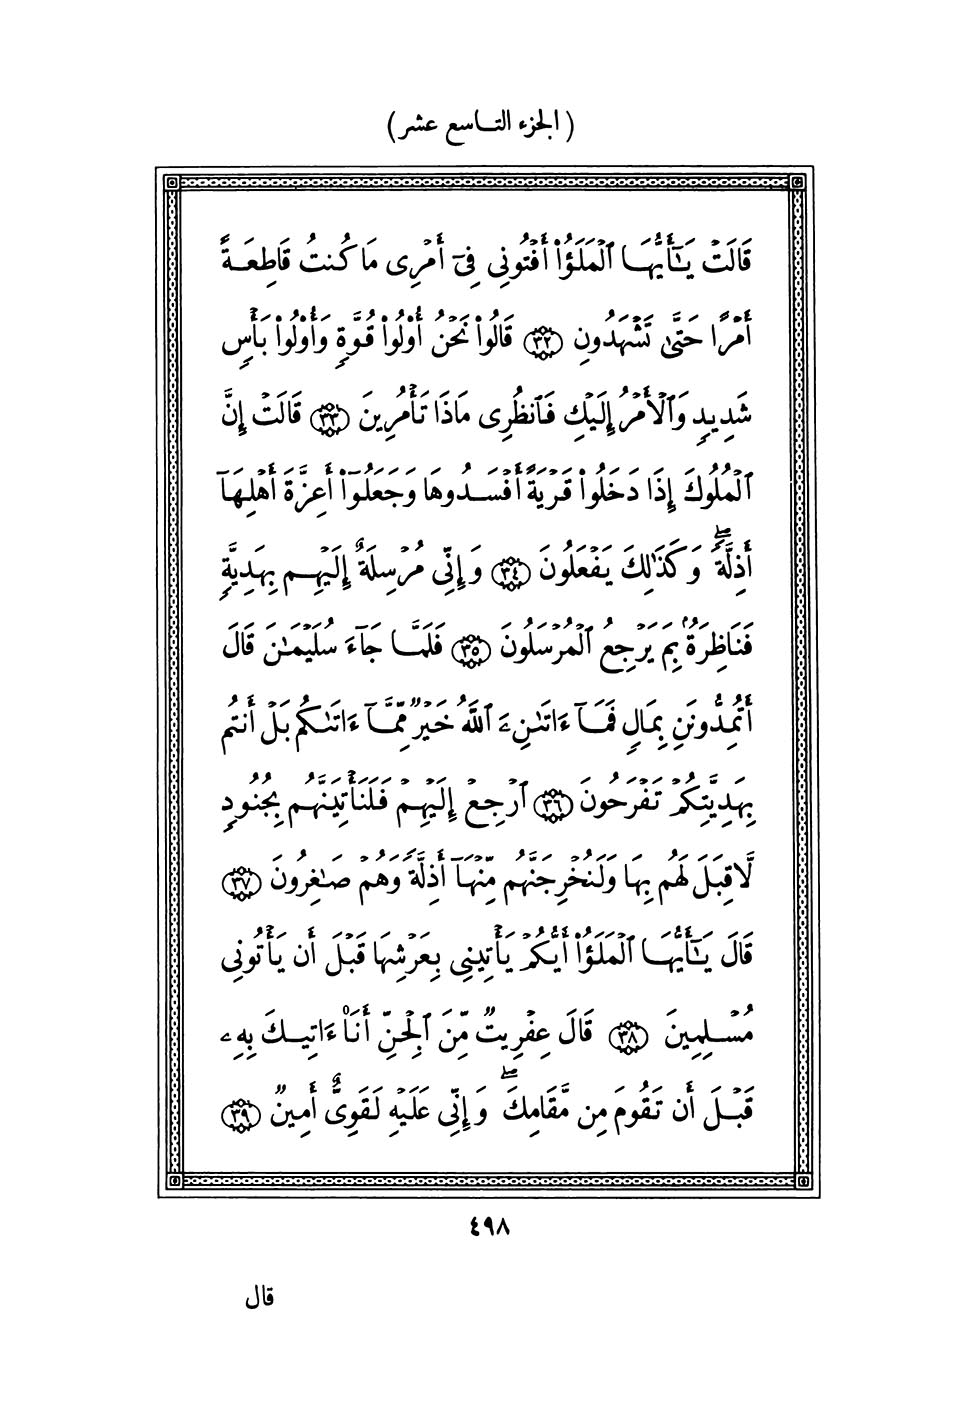 (الجزء التاسع عشر)
قَالَتْ يَٰٓأَيُّهَا ٱلْمَلَؤُا۟ أَفْتُونِى فِىٓ أَمْرِى مَا كُنتُ قَاطِعَةً
أَمْرًا حَتَّىٰ تَشْهَدُونِ ٣٢ قَالُوا۟ نَحْنُ أُو۟لُوا۟ قُوَّةٍ وَأُو۟لُوا۟ بَأْسٍ
شَدِيدٍ وَٱلْأَمْرُ إِلَيْكِ فَٱنظُرِى مَاذَا تَأْمُرِينَ ٣٣ قَالَتْ إِنَّ
ٱلْمُلُوكَ إِذَا دَخَلُوا۟ قَرْيَةً أَفْسَدُوهَا وَجَعَلُوٓا۟ أَعِزَّةَ أَهْلِهَآ
أَذِلَّةً ۖ وَكَذَٰلِكَ يَفْعَلُونَ ٣٤ وَإِنِّى مُرْسِلَةٌ إِلَيْهِم بِهَدِيَّةٍ
فَنَاظِرَةٌۢ بِمَ يَرْجِعُ ٱلْمُرْسَلُونَ ٣٥ فَلَمَّا جَآءَ سُلَيْمَٰنَ قَالَ
أَتُمِدُّونَنِ بِمَالٍ فَمَآ ءَاتَىٰنِۦَ ٱللَّهُ خَيْرٌ مِّمَّآ ءَاتَىٰكُم بَلْ أَنتُم
بِهَدِيَّتِكُمْ تَفْرَحُونَ ٣٦ ٱرْجِعْ إِلَيْهِمْ فَلَنَأْتِيَنَّهُم بِجُنُودٍ
لَّا قِبَلَ لَهُم بِهَا وَلَنُخْرِجَنَّهُم مِّنْهَآ أَذِلَّةً وَهُمْ صَٰغِرُونَ ٣٧
قَالَ يَٰٓأَيُّهَا ٱلْمَلَؤُا۟ أَيُّكُمْ يَأْتِينِى بِعَرْشِهَا قَبْلَ أَن يَأْتُونِى
مُسْلِمِينَ ٣٨ قَالَ عِفْرِيتٌ مِّنَ ٱلْجِنِّ أَنَا۠ ءَاتِيكَ بِهِۦ
قَبْلَ أَن تَقُومَ مِن مَّقَامِكَ ۖ وَإِنِّى عَلَيْهِ لَقَوِىٌّ أَمِينٌ ٣٩
٤٩٨
قال